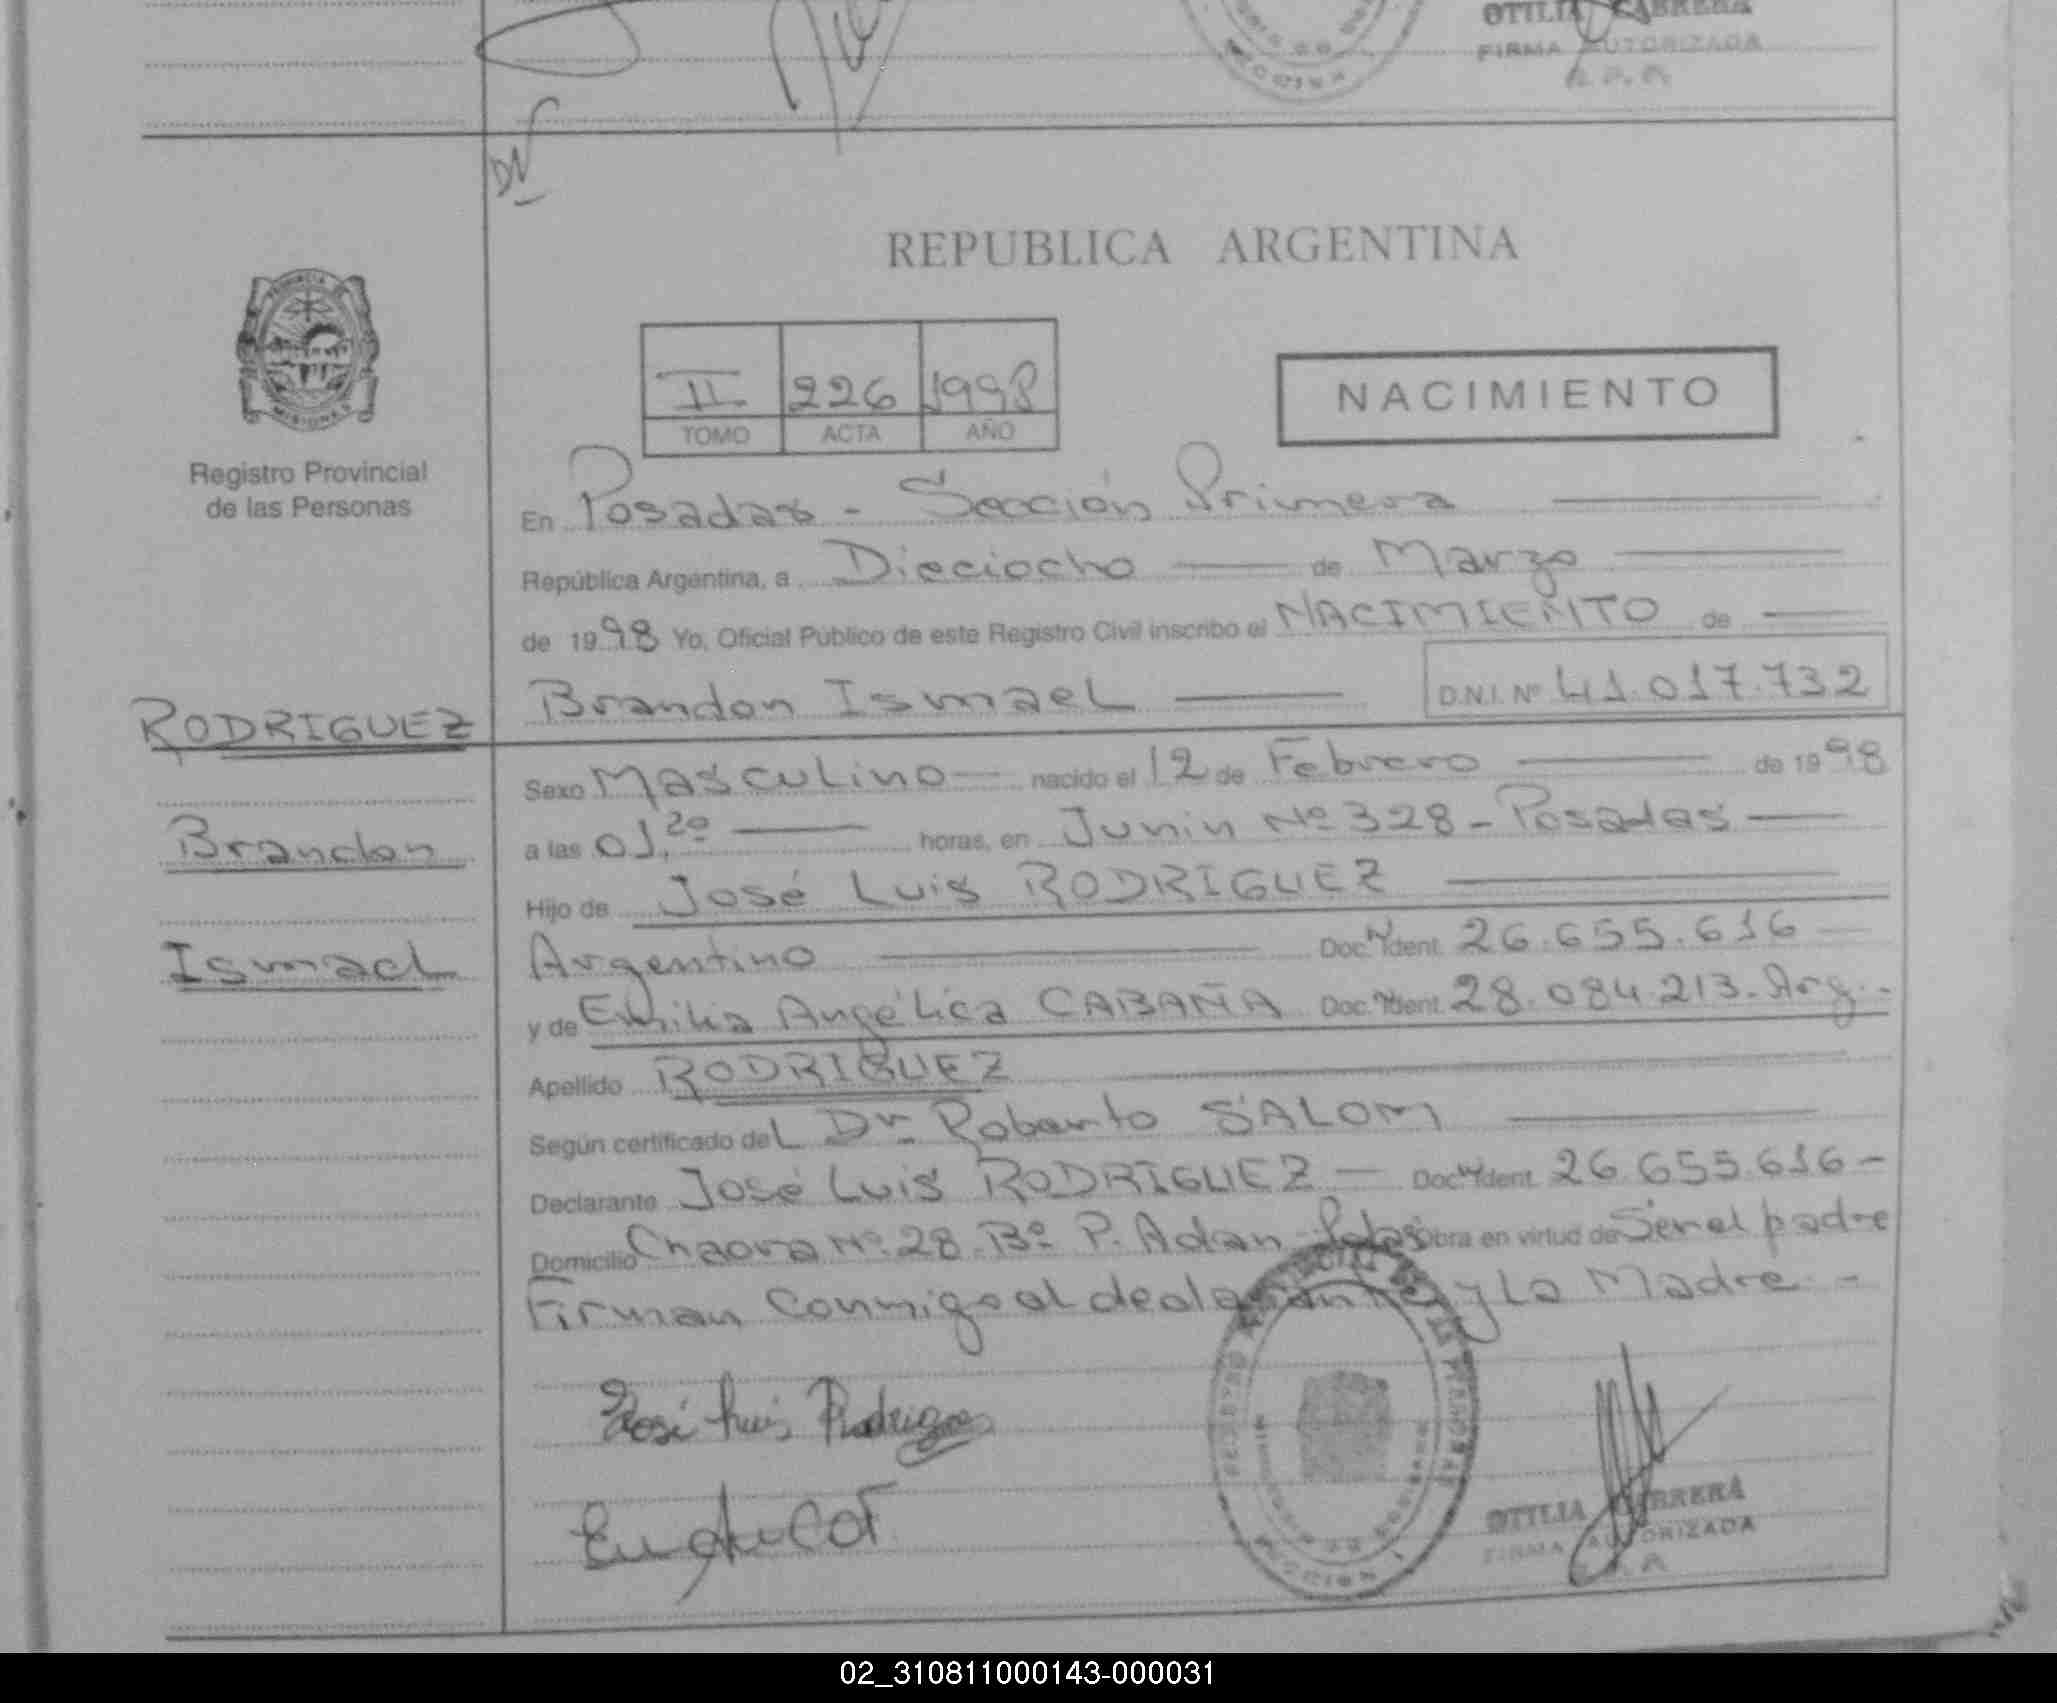 OTILIA CABRERA
FIRMA AUTORIZADA
R. P. P.
REPUBLICA ARGENTINA
PROVINCIA DE
MISIONES
Registro Provincial
de las Personas
II 226 1998
TOMO ACTA AÑO
NACIMIENTO
En Posadas - Sección Primera
República Argentina, a Dieciocho de Marzo
de 1998 Yo, Oficial Público de este Registro Civil inscribo el NACIMIENTO de
Brandon Ismael D.N.I. Nº 41.017.732
RODRIGUEZ
Brandon
Ismael
Sexo Masculino nacido el 12 de Febrero de 1998
a las 01,20 horas, en Junin Nº 328 - Posadas
Hijo de José Luis RODRIGUEZ
Argentino Doc. Ident. 26.655.616
y de Emilia Angélica CABAÑA Doc. Ident. 28.084.213. Arg.
Apellido RODRIGUEZ
Según certificado del Dr. Roberto SALOM
Declarante José Luis RODRIGUEZ - Doc. Ident. 26.655.616 -
Domicilio Chacra Nº 28 Bº P. Adan - Pdas Obra en virtud de Ser el padre
Firman Conmigo el declarante y La Madre -
José Luis Rodriguez
OTILIA CABRERA
FIRMA AUTORIZADA
02_310811000143-000031